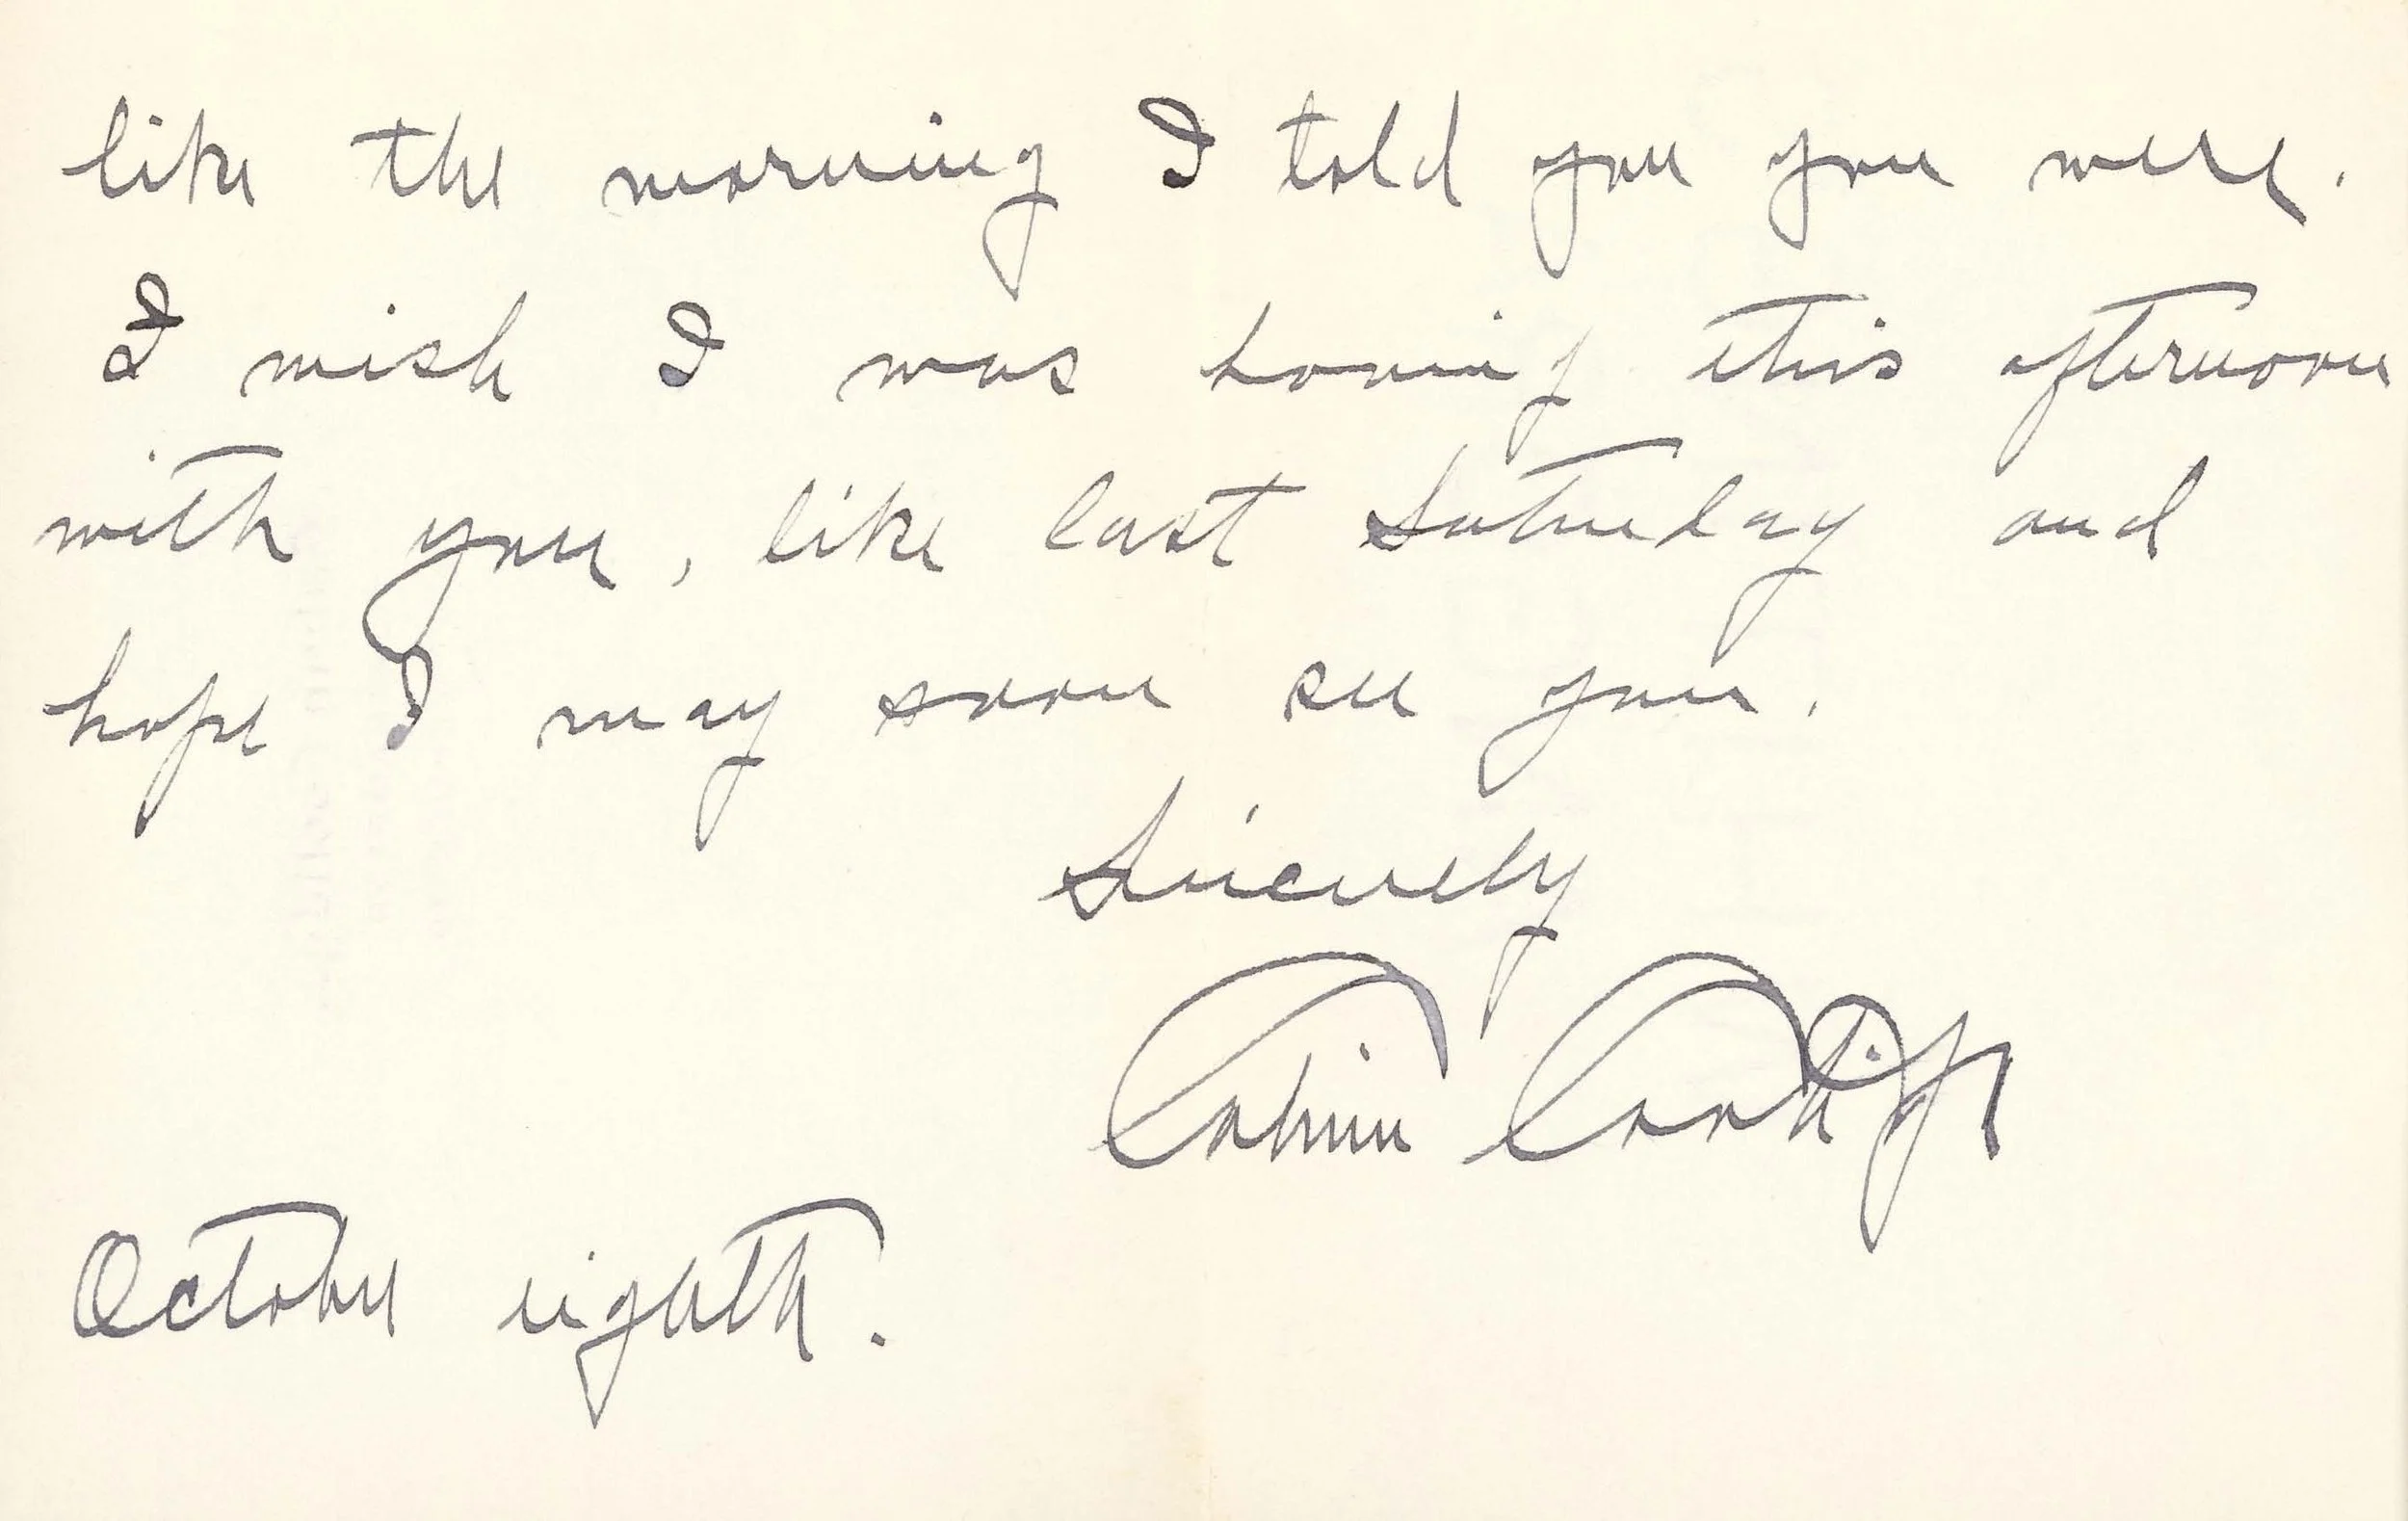 like the morning I told you you were.
I wish I was having this afternoon
with you, like last Saturday and
hope I may soon see you.
Sincerely
Calvin Coolidge
October eighth.